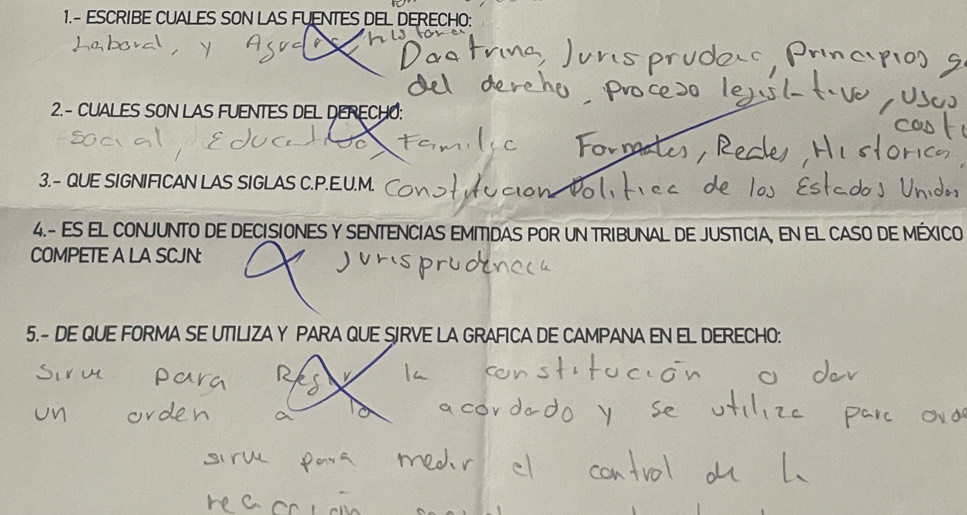 1.- ESCRIBE CUALES SON LAS FUENTES DEL DERECHO:
Laboral, y
Doctrina, Jurisprudenc, Principios g
del derecho, proceso legislativo, usos
cost
2.- CUALES SON LAS FUENTES DEL DERECHO:
social, Educativo, Familic Formales, Reales, Historica
3.- QUE SIGNIFICAN LAS SIGLAS C.P.E.U.M. Constitucion Politica de los Estados Unidos
4.- ES EL CONJUNTO DE DECISIONES Y SENTENCIAS EMITIDAS POR UN TRIBUNAL DE JUSTICIA, EN EL CASO DE MÉXICO
COMPETE A LA SCJN: Jurisprudencia
5.- DE QUE FORMA SE UTILIZA Y PARA QUE SIRVE LA GRAFICA DE CAMPANA EN EL DERECHO:
Sirve para Regir la constitución o dar
un orden a lo acordado y se utiliza para
sirve para medir el control de la
reacción